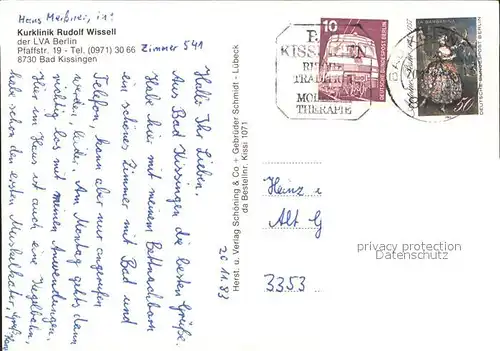 Hans Meßner, in:
Kurklinik Rudolf Wissell
der LVA Berlin
Pfaffstr. 19 - Tel. (0971) 30 66 Zimmer 541
8730 Bad Kissingen
Hallo Ihr Lieben.
Aus Bad Kissingen die besten Grüße.
Habe hier mit meinem Bettnachbarn
ein schönes Zimmer mit Bad und
Telefon, kann aber nur angerufen
werden, leider. Am Montag gehts dann
richtig los mit meinen Anwendungen.
Hier im Haus ist auch eine Kegelbahn,
habe schon den ersten Muskelkater,
20.11.83
Herst. u. Verlag Schöning & Co + Gebrüder Schmidt - Lübeck
da Bestellnr. Kissi 1071
BAD
KISSINGEN
RHEUMA
TRADITION
MODERNE
THERAPIE
10
DEUTSCHE BUNDESPOST BERLIN
50
DEUTSCHE BUNDESPOST BERLIN
Heinz
Alt G
3353
privacy protection
watermark